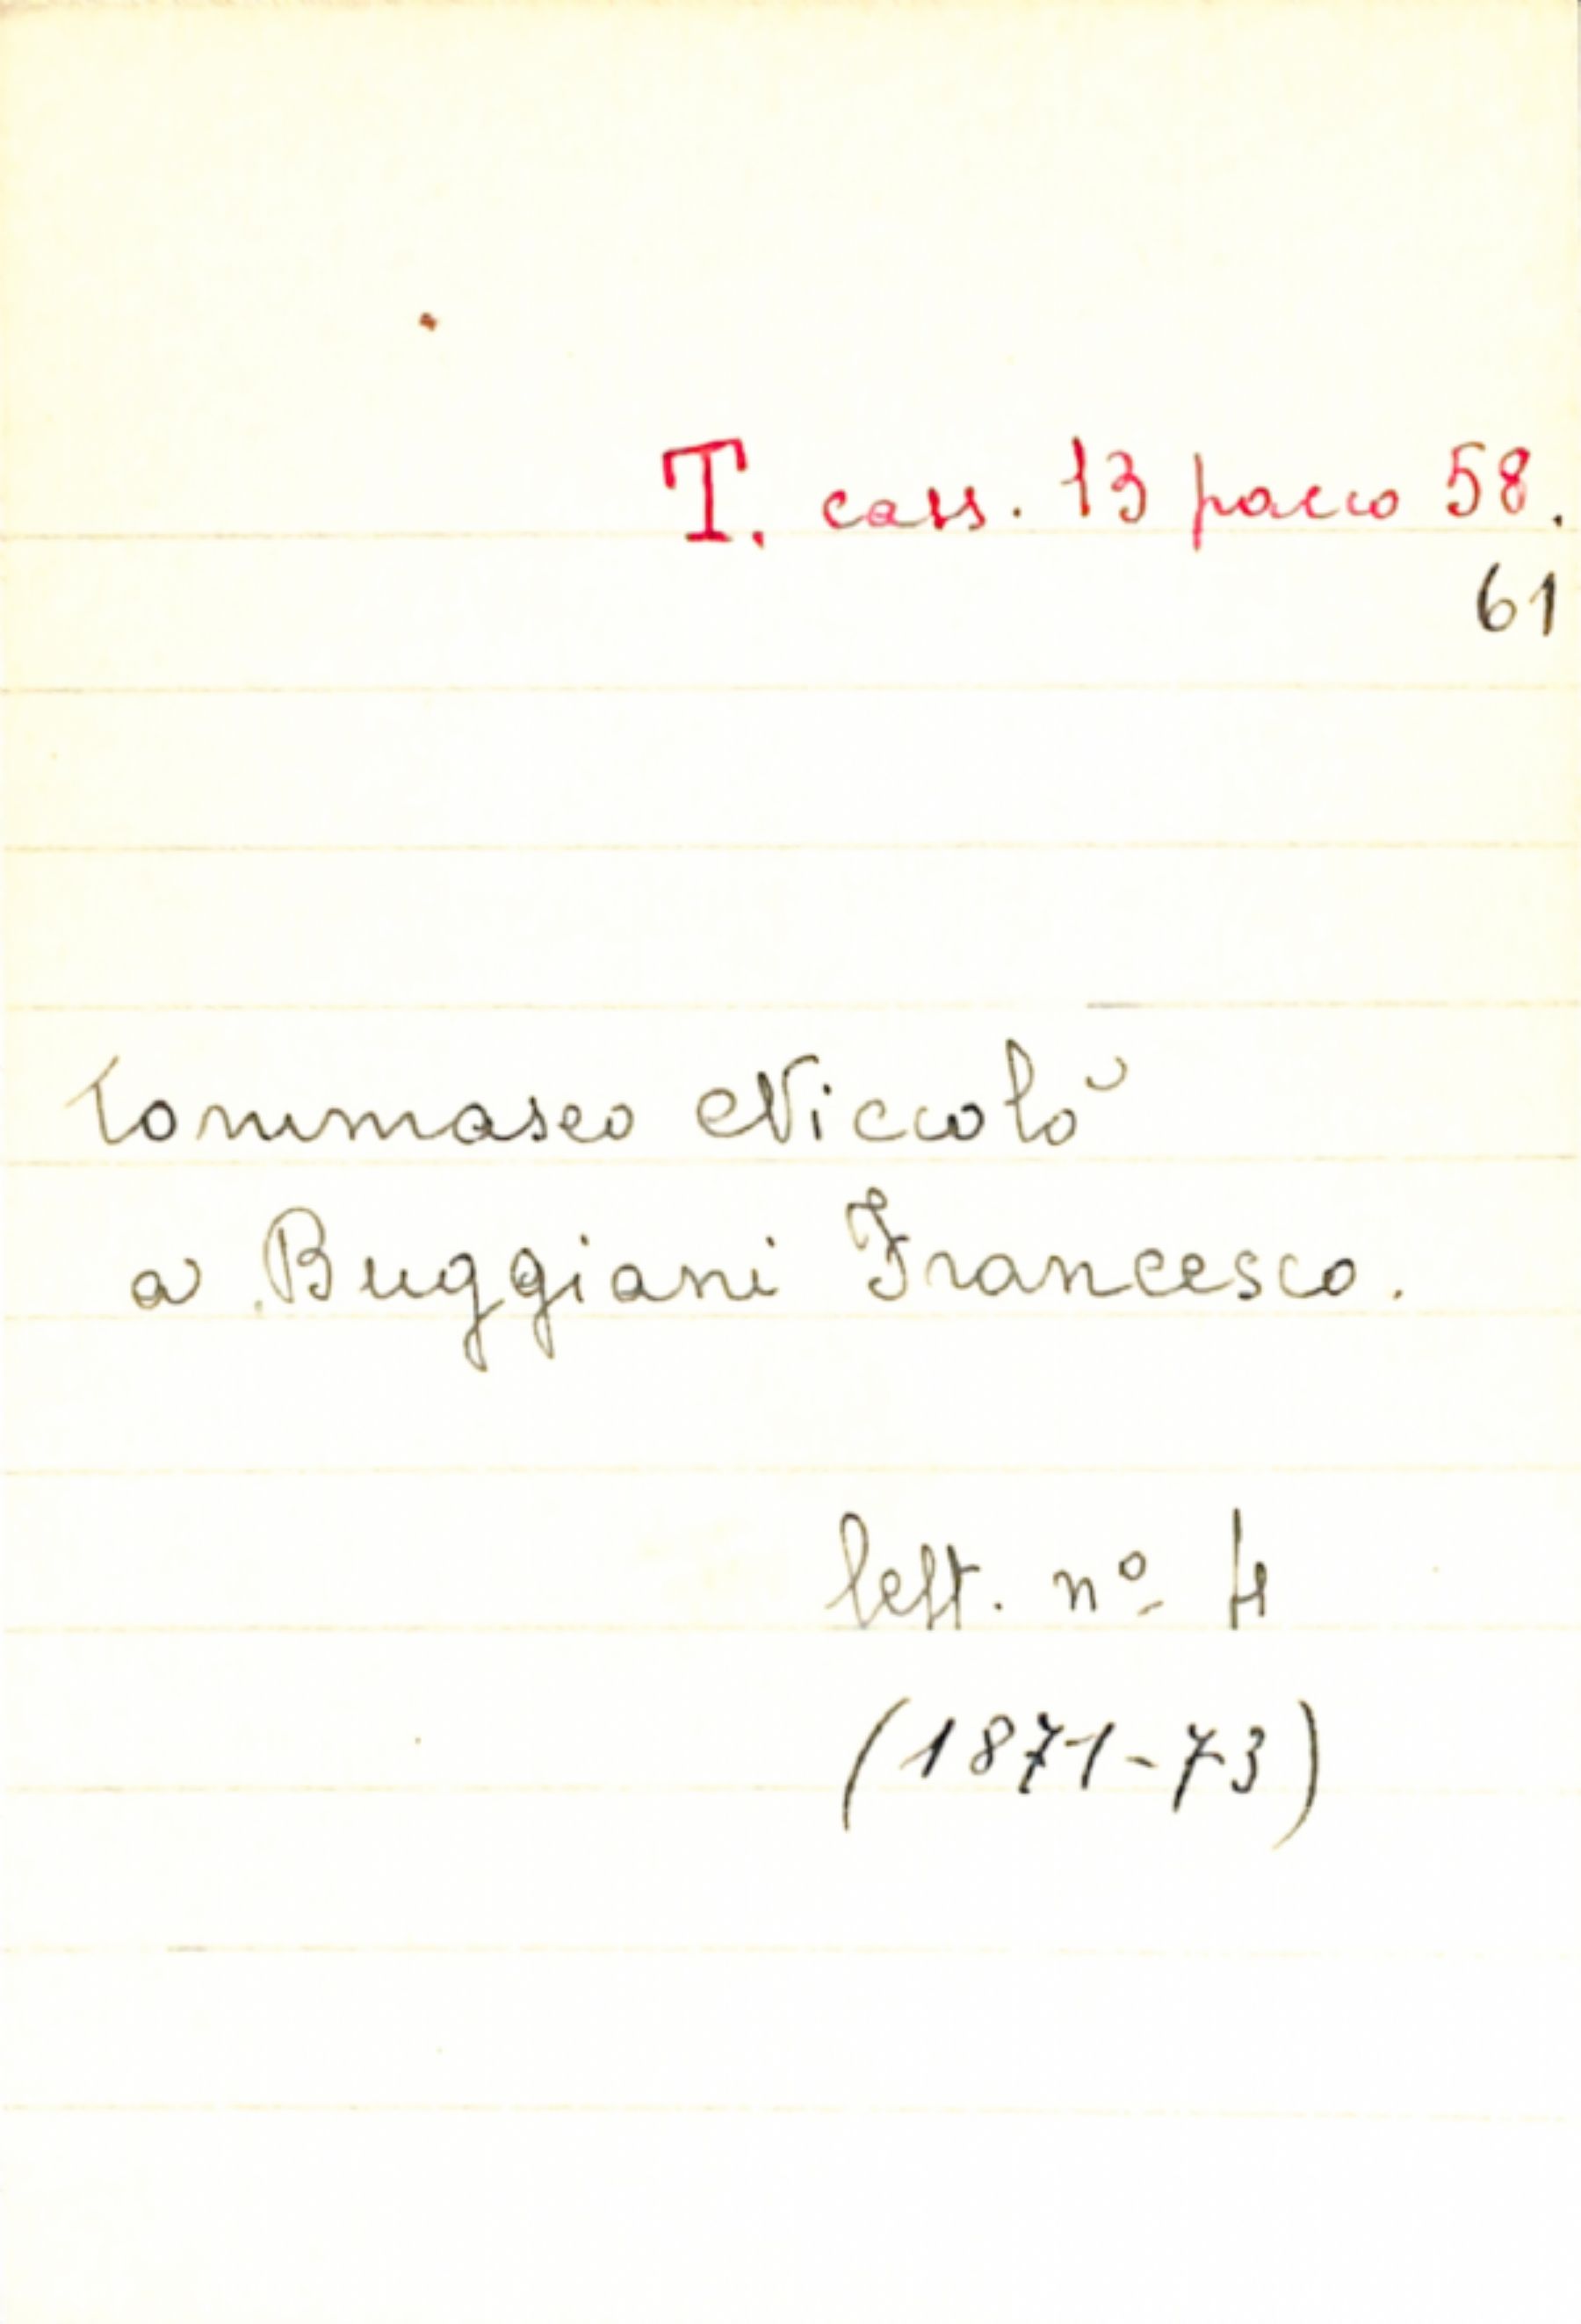 T. cass. 13 pacco 58.
61
Tommaseo Niccolò
a Buggiani Francesco.
lett. nº 4
(1871-73)